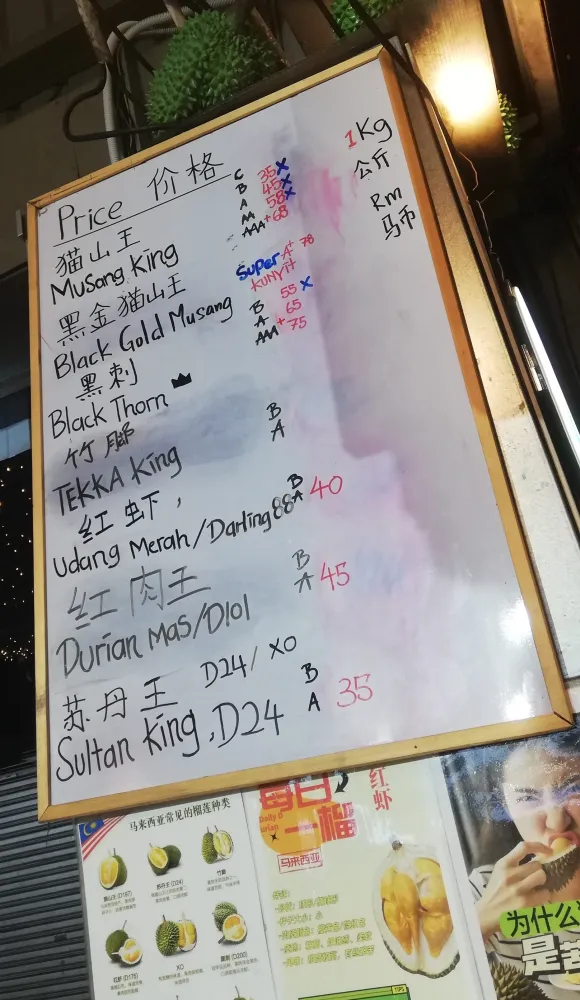 Price 价格
1 Kg
公斤
Rm
马币
猫山王
Musang King
C 35 X
B 45 X
A 58 X
AA
AAA + 68
黑金猫山王
Black Gold Musang
Super A+ 78
KUNYIT
B 55 X
A 65
AAA + 75
黑刺
Black Thorn
竹脚
TEKKA King
B
A
红虾,
Udang Merah/Darling 88
B
A 40
红肉王
Durian Mas/D101
B
A 45
苏丹王 D24/ XO
Sultan King, D24
B
A 35
马来西亚常见的榴莲种类
猫山王(D197)
苏丹王(D24)
竹脚
红虾(D175)
XO
黑刺(D200)
每日
一榴
Daily D
urian
红虾
马来西亚
TIPS
为什么
是苦